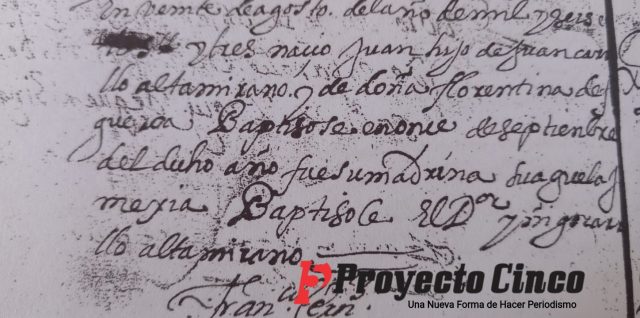 en veinte de agosto. del año de mil y seis
y tres naçio Juan hijo de Juan carri
llo altamirano. y de doña florentina de fi
gueroa Baptisose. en onçe de septiembre
del dicho año fue su madrina su aguela
mexia Baptisole El D.or
llo altamirano
Fran.
Proyecto Cinco
Una Nueva Forma de Hacer Periodismo